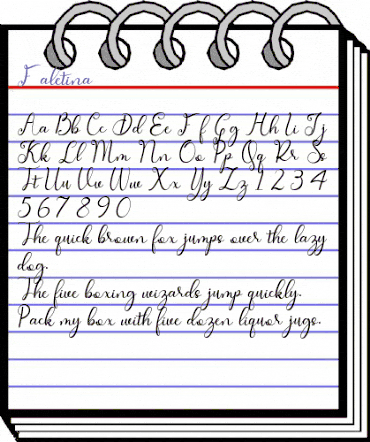 Faletina
Aa Bb Cc Dd Ee Ff Gg Hh Ii Jj
Kk Ll Mm Nn Oo Pp Qq Rr Ss
Tt Uu Vv Ww Xx Yy Zz 1 2 3 4
5 6 7 8 9 0
The quick brown fox jumps over the lazy
dog.
The five boxing wizards jump quickly.
Pack my box with five dozen liquor jugs.